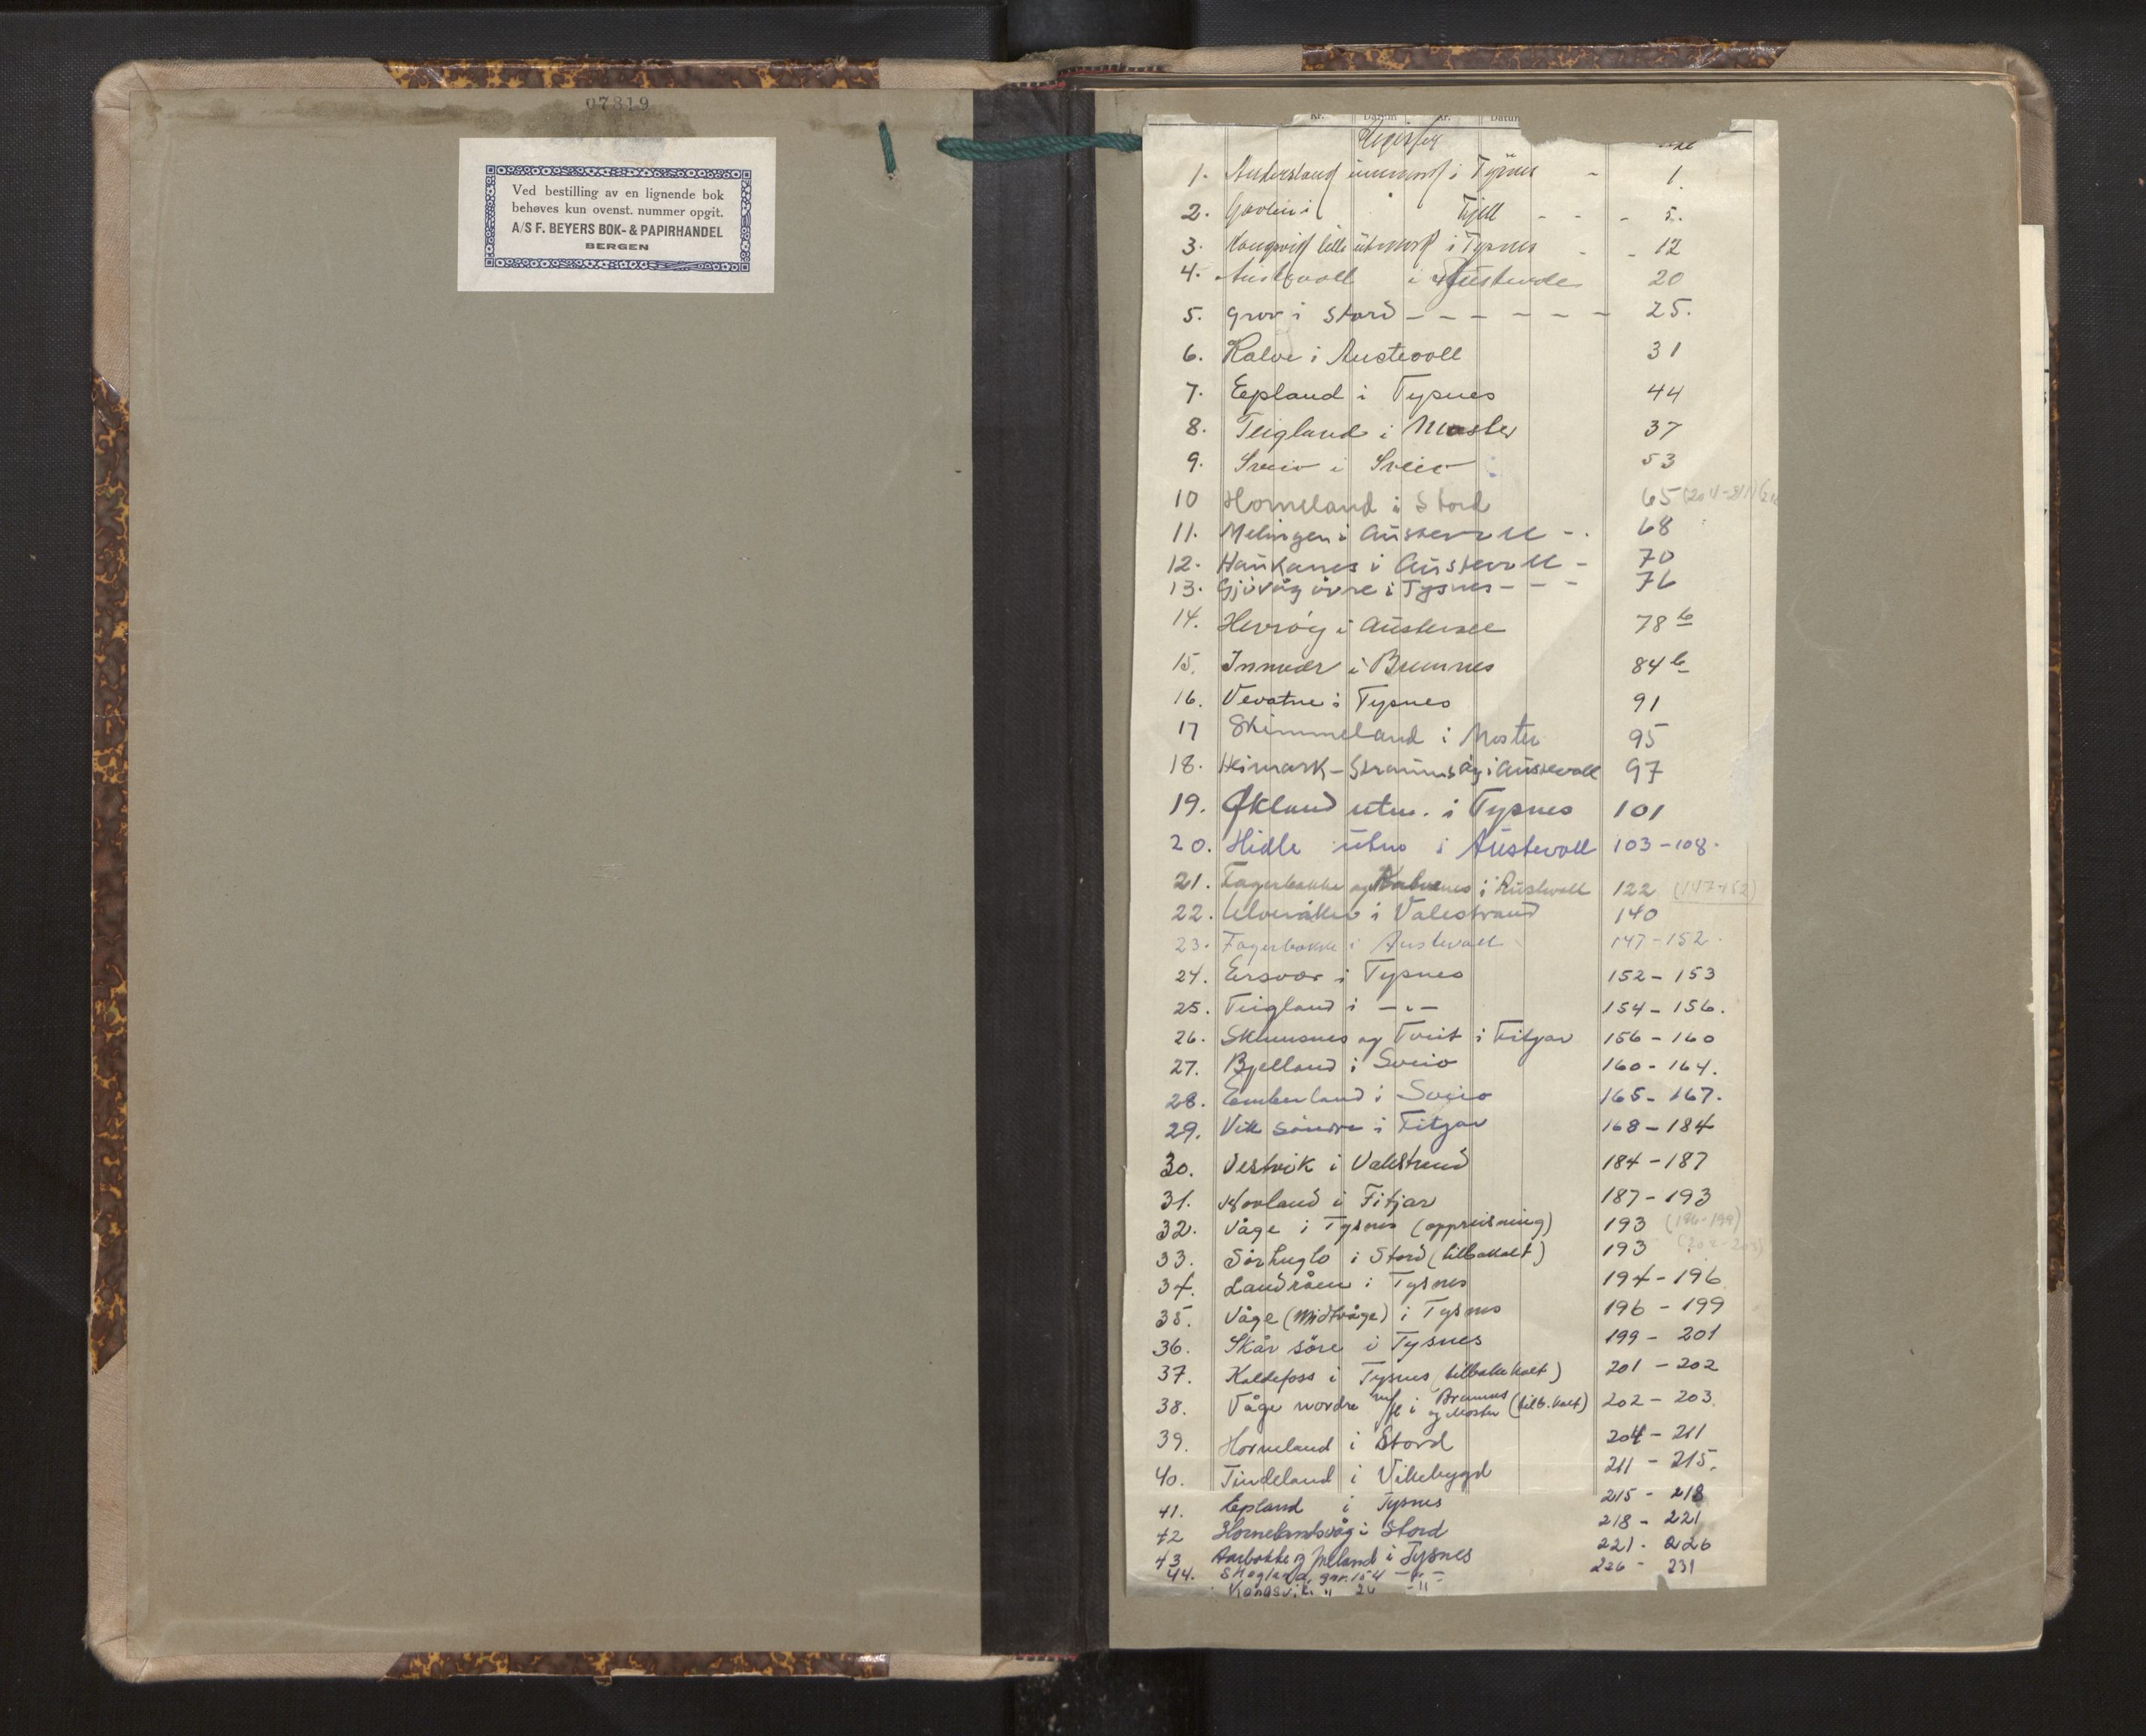 07819
Ved bestilling av en lignende bok
behøves kun ovenst. nummer opgit.
A/S F. BEYERS BOK- & PAPIRHANDEL
BERGEN
Kr. Datum Kr. Datum
Register
1. Andersland innmark i Tysnes - 1.
2. i - - - 5.
3. lille utmark i Tysnes - - 12
4. Austevoll i Austevoll 20
5. Grov i Stord - - - - - - 25.
6. Kalve i Austevoll 31
7. Epland i Tysnes 44
8. Teigland i Moster 37
9. Sveio i Sveio 53
10 Horneland i Stord 65 (204-211)
11. Melingen i Austevoll - . 68
12. Haukanes i Austevoll - 70
13. Gjövåg övre i Tysnes - - - 76
14. Hevröy i Austevoll 78 b
15. Innvær i Bremnes 84 b
16. Vevatne i Tysnes 91
17 Skimmeland i Moster 95
18. Heimark - Straumsöy i Austevoll 97
19. Økland utm. i Tysnes 101
20. Hidle utm i Austevoll 103-108.
21. Fagerbakke og Kalvenes i Austevoll 122 (147-152)
22. Ulveråker i Valestrand 140
23. Fagerbakke i Austevoll 147-152.
24. Ersvær i Tysnes 152-153
25. Teigland i -"- 154-156.
26. Skumsnes og Tveit i Fitjar 156-160
27. Bjelland i Sveio 160-164.
28. Emberland i Sveio 165-167.
29. Vik söndre i Fitjar 168-184
30. Vestvik i Valestrand 184-187
31. Hovland i Fitjar 187-193
32. Våge i Tysnes (oppreisning) 193 (196-199)
33. Sörhuglo i Stord (tilbakalt) 193 (202-203)
34. Landråen i Tysnes 194-196
35. Våge (Midtvåge) i Tysnes 196-199
36. Skår söre i Tysnes 199-201
37. Kaldefoss i Tysnes (tilbakekalt) 201-202
38. Våge nordre m/fl i Bremnes og Moster (tilb.kalt) 202-203.
39. Horneland i Stord 204-211
40. Tindeland i Vikebygd 211-215.
41. Epland i Tysnes 215-218
42 Hornelandsvåg i Stord 218-221
43 Aarbakke og i Tysnes 221-226
44. Skogland, gnr. 154 -"- 226-231
Kongsvik " 26 -"-